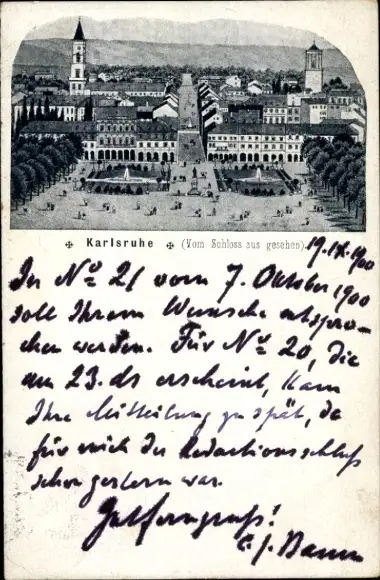 ✠ Karlsruhe ✠ (Vom Schloss aus gesehen).
19. IX. 1900
In No 21 vom 7. Oktober 1900
soll Ihrem Wunsche entspro-
chen werden. Für No 20, die
am 23. ds erscheint, kam
Ihre Mitteilung zu spät, da
für mich der Redactionsschluß
schon gestern war.
Gutferngruß!
C. J.